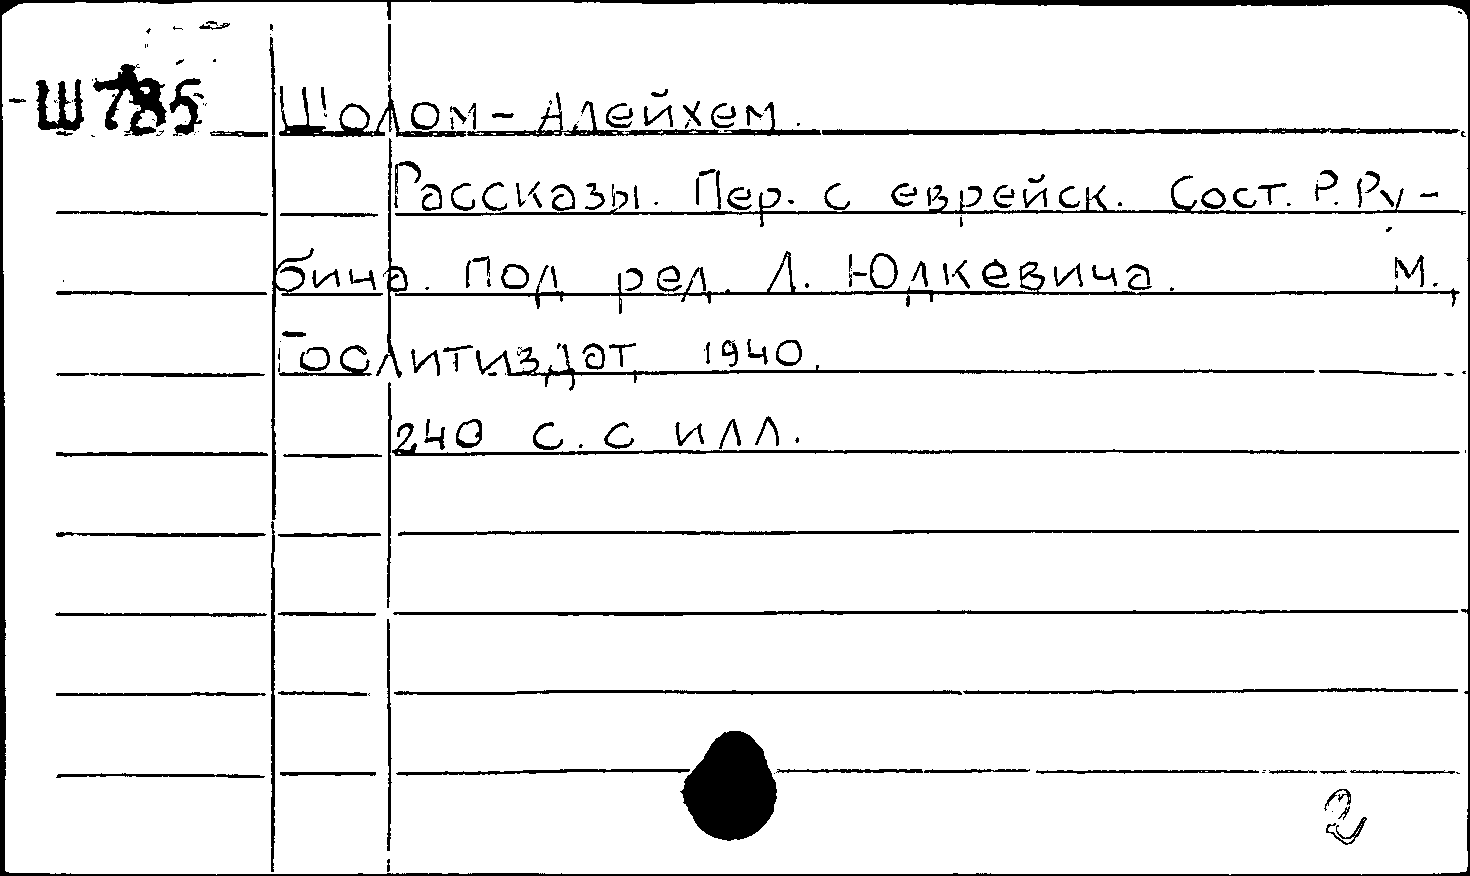 Ш785
Шолом-Алейхем.
Рассказы. Пер. с еврейск. Сост. Р. Ру-
бина. Под ред. Л. Юдкевича. М.,
Гослитиздат, 1940.
240 с. с илл.
2